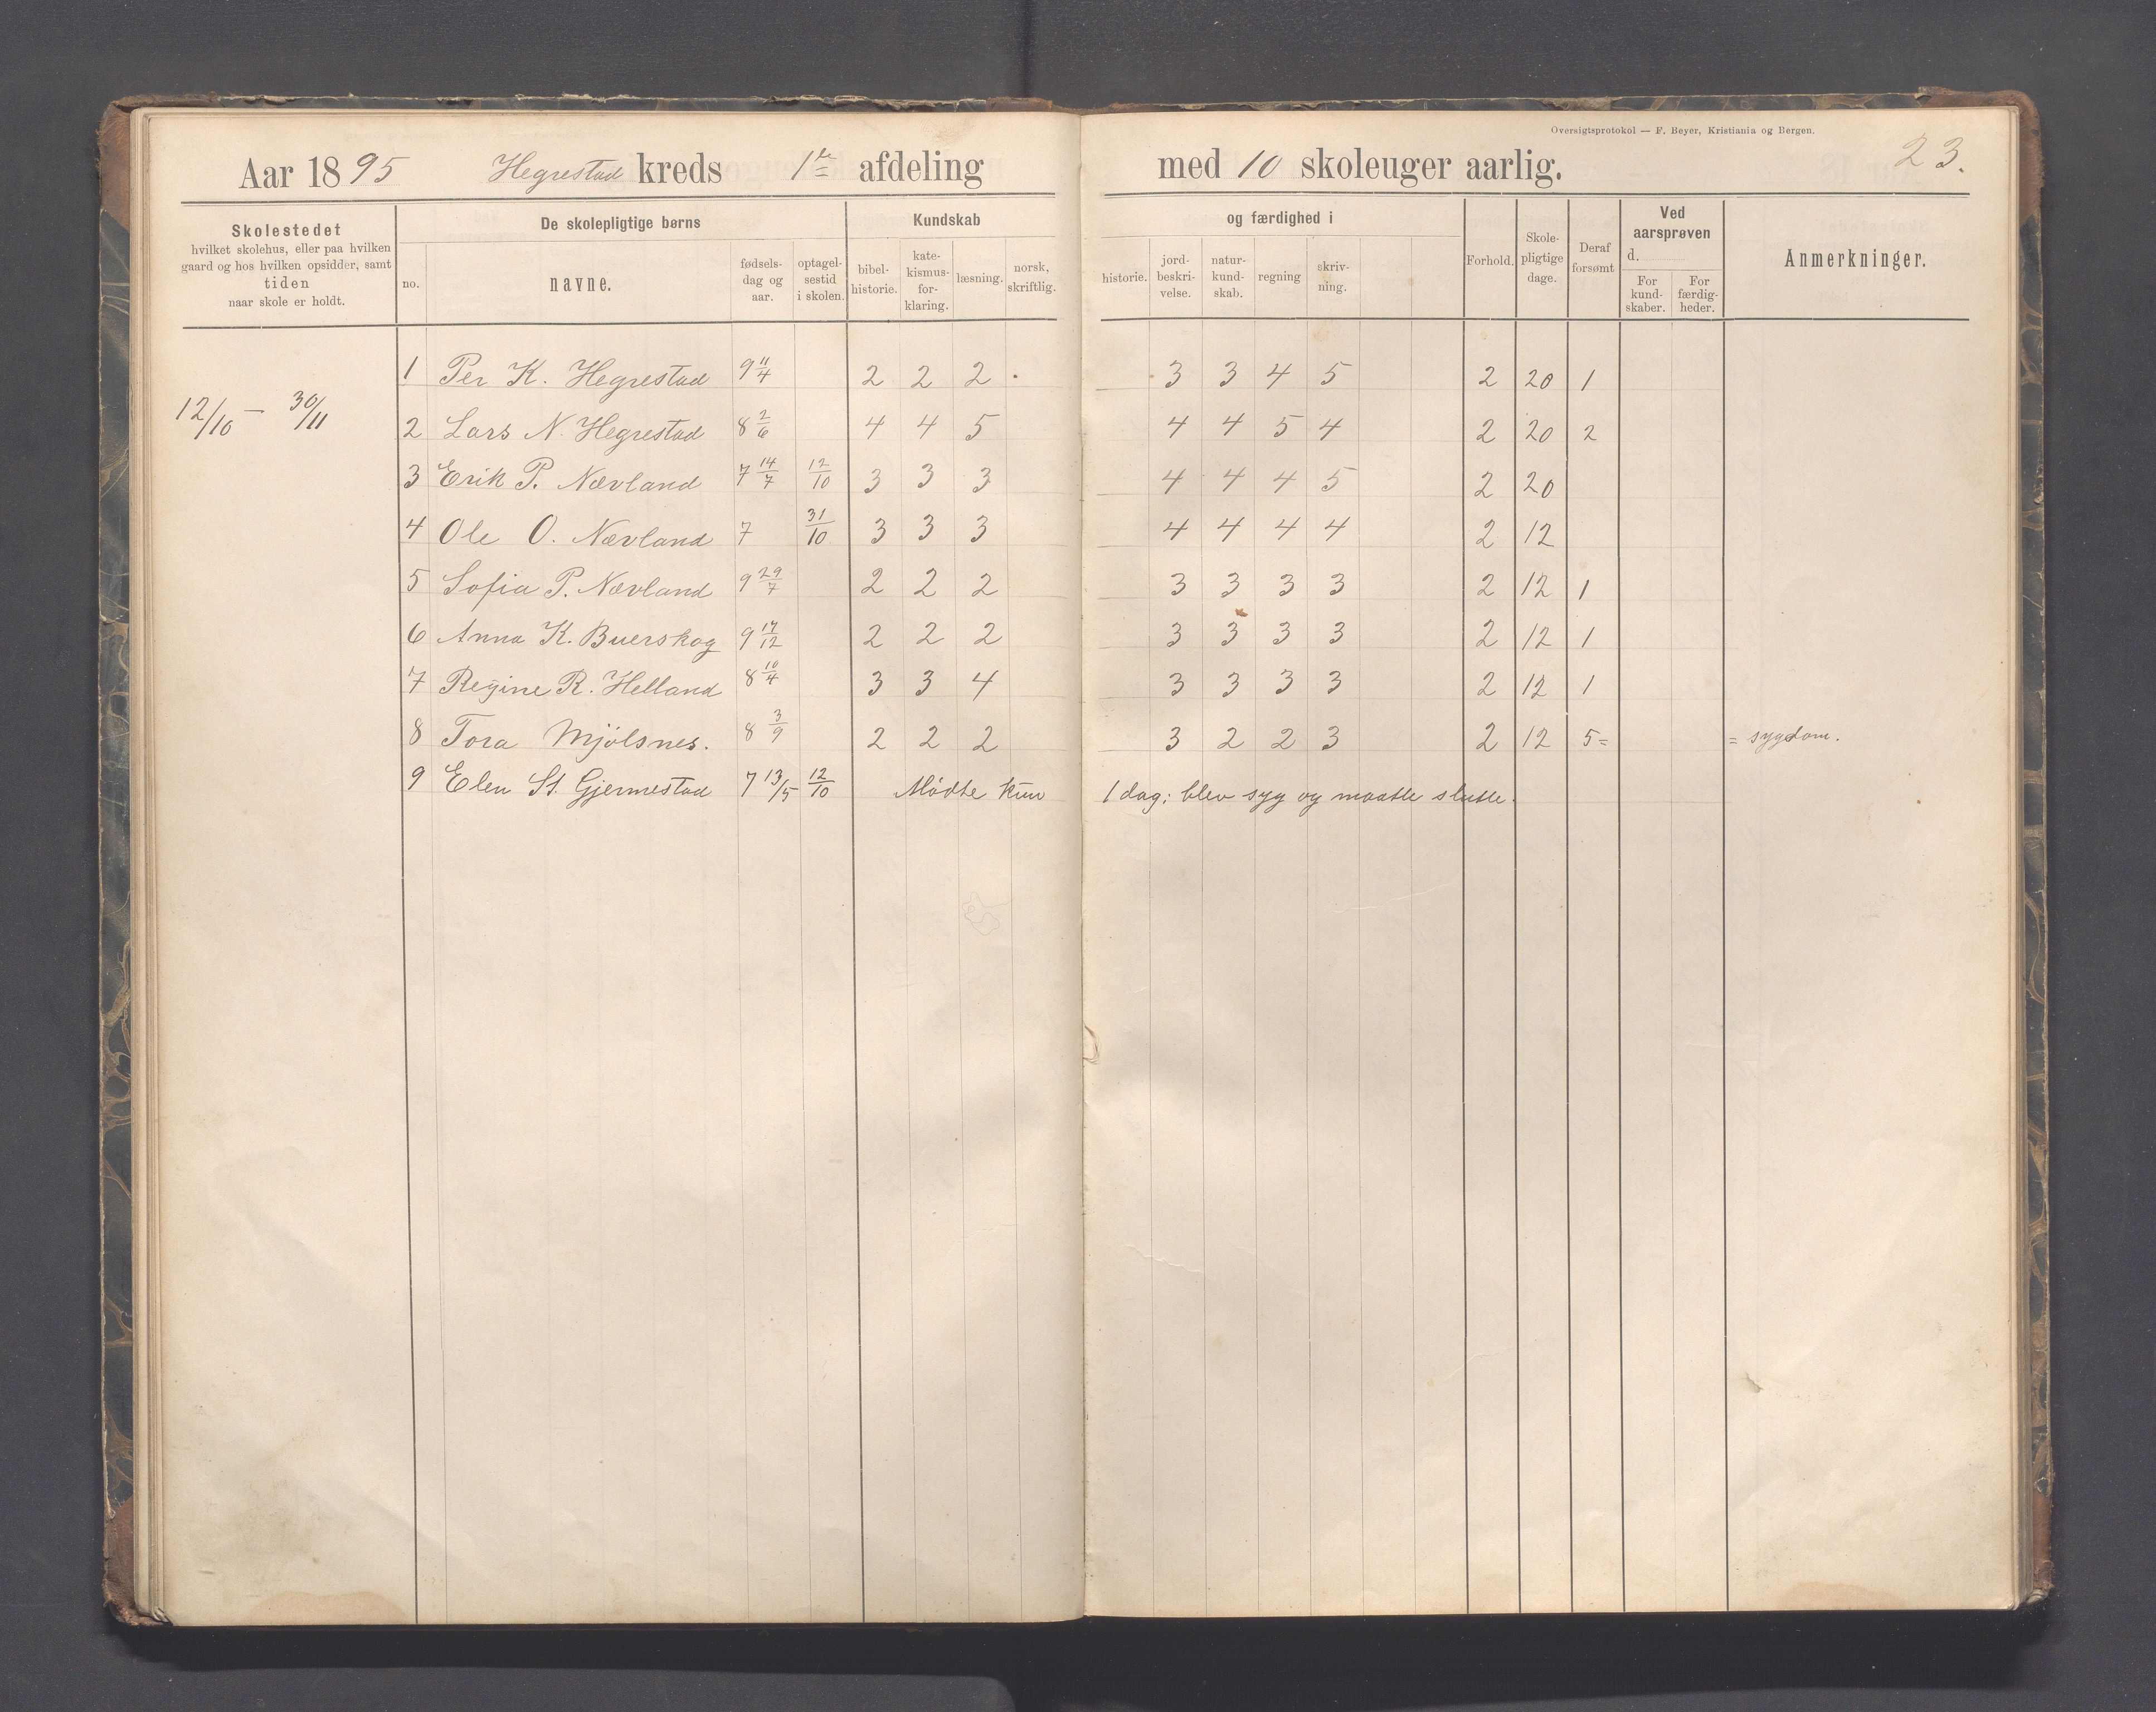 Oversigtsprotokol — F. Beyer, Kristiania og Bergen.
23.
Aar 1895 Hegrestad kreds 1ste afdeling med 10 skoleuger aarlig.
Skolestedet
hvilket skolehus, eller paa hvilken
gaard og hos hvilken opsidder, samt
tiden
naar skole er holdt.
De skolepligtige børns
no.
navne.
fødsels-
dag og
aar.
optagel-
sestid
i skolen.
Kundskab
bibel-
historie.
kate-
kismus-
for-
klaring.
læsning.
norsk,
skriftlig.
og færdighed i
historie.
jord-
beskri-
velse.
natur-
kund-
skab.
regning
skriv-
ning.
Forhold.
Skole-
pligtige
dage.
Deraf
forsømt
Ved
aarsprøven
d.
For
kund-
skaber.
For
færdig-
heder.
Anmerkninger.
12/10 — 30/11
1 Per K. Hegrestad 9 11/4 2 2 2 . 3 3 4 5 2 20 1
2 Lars N. Hegrestad 8 2/6 4 4 5 4 4 5 4 2 20 2
3 Erik P. Nævland 7 14/7 12/10 3 3 3 4 4 4 5 2 20
4 Ole O. Nævland 7 31/10 3 3 3 4 4 4 4 2 12
5 Sofia P. Nævland 9 29/7 2 2 2 3 3 3 3 2 12 1
6 Anna K. Buerskog 9 17/12 2 2 2 3 3 3 3 2 12 1
7 Regine R. Helland 8 10/4 3 3 4 3 3 3 3 2 12 1
8 Tora Mjölsnes. 8 3/9 2 2 2 3 2 2 3 2 12 5= = sygdom.
9 Elen St. Gjermestad 7 13/5 12/10 Mödte kun 1 dag; blev syg og maatte slutte.